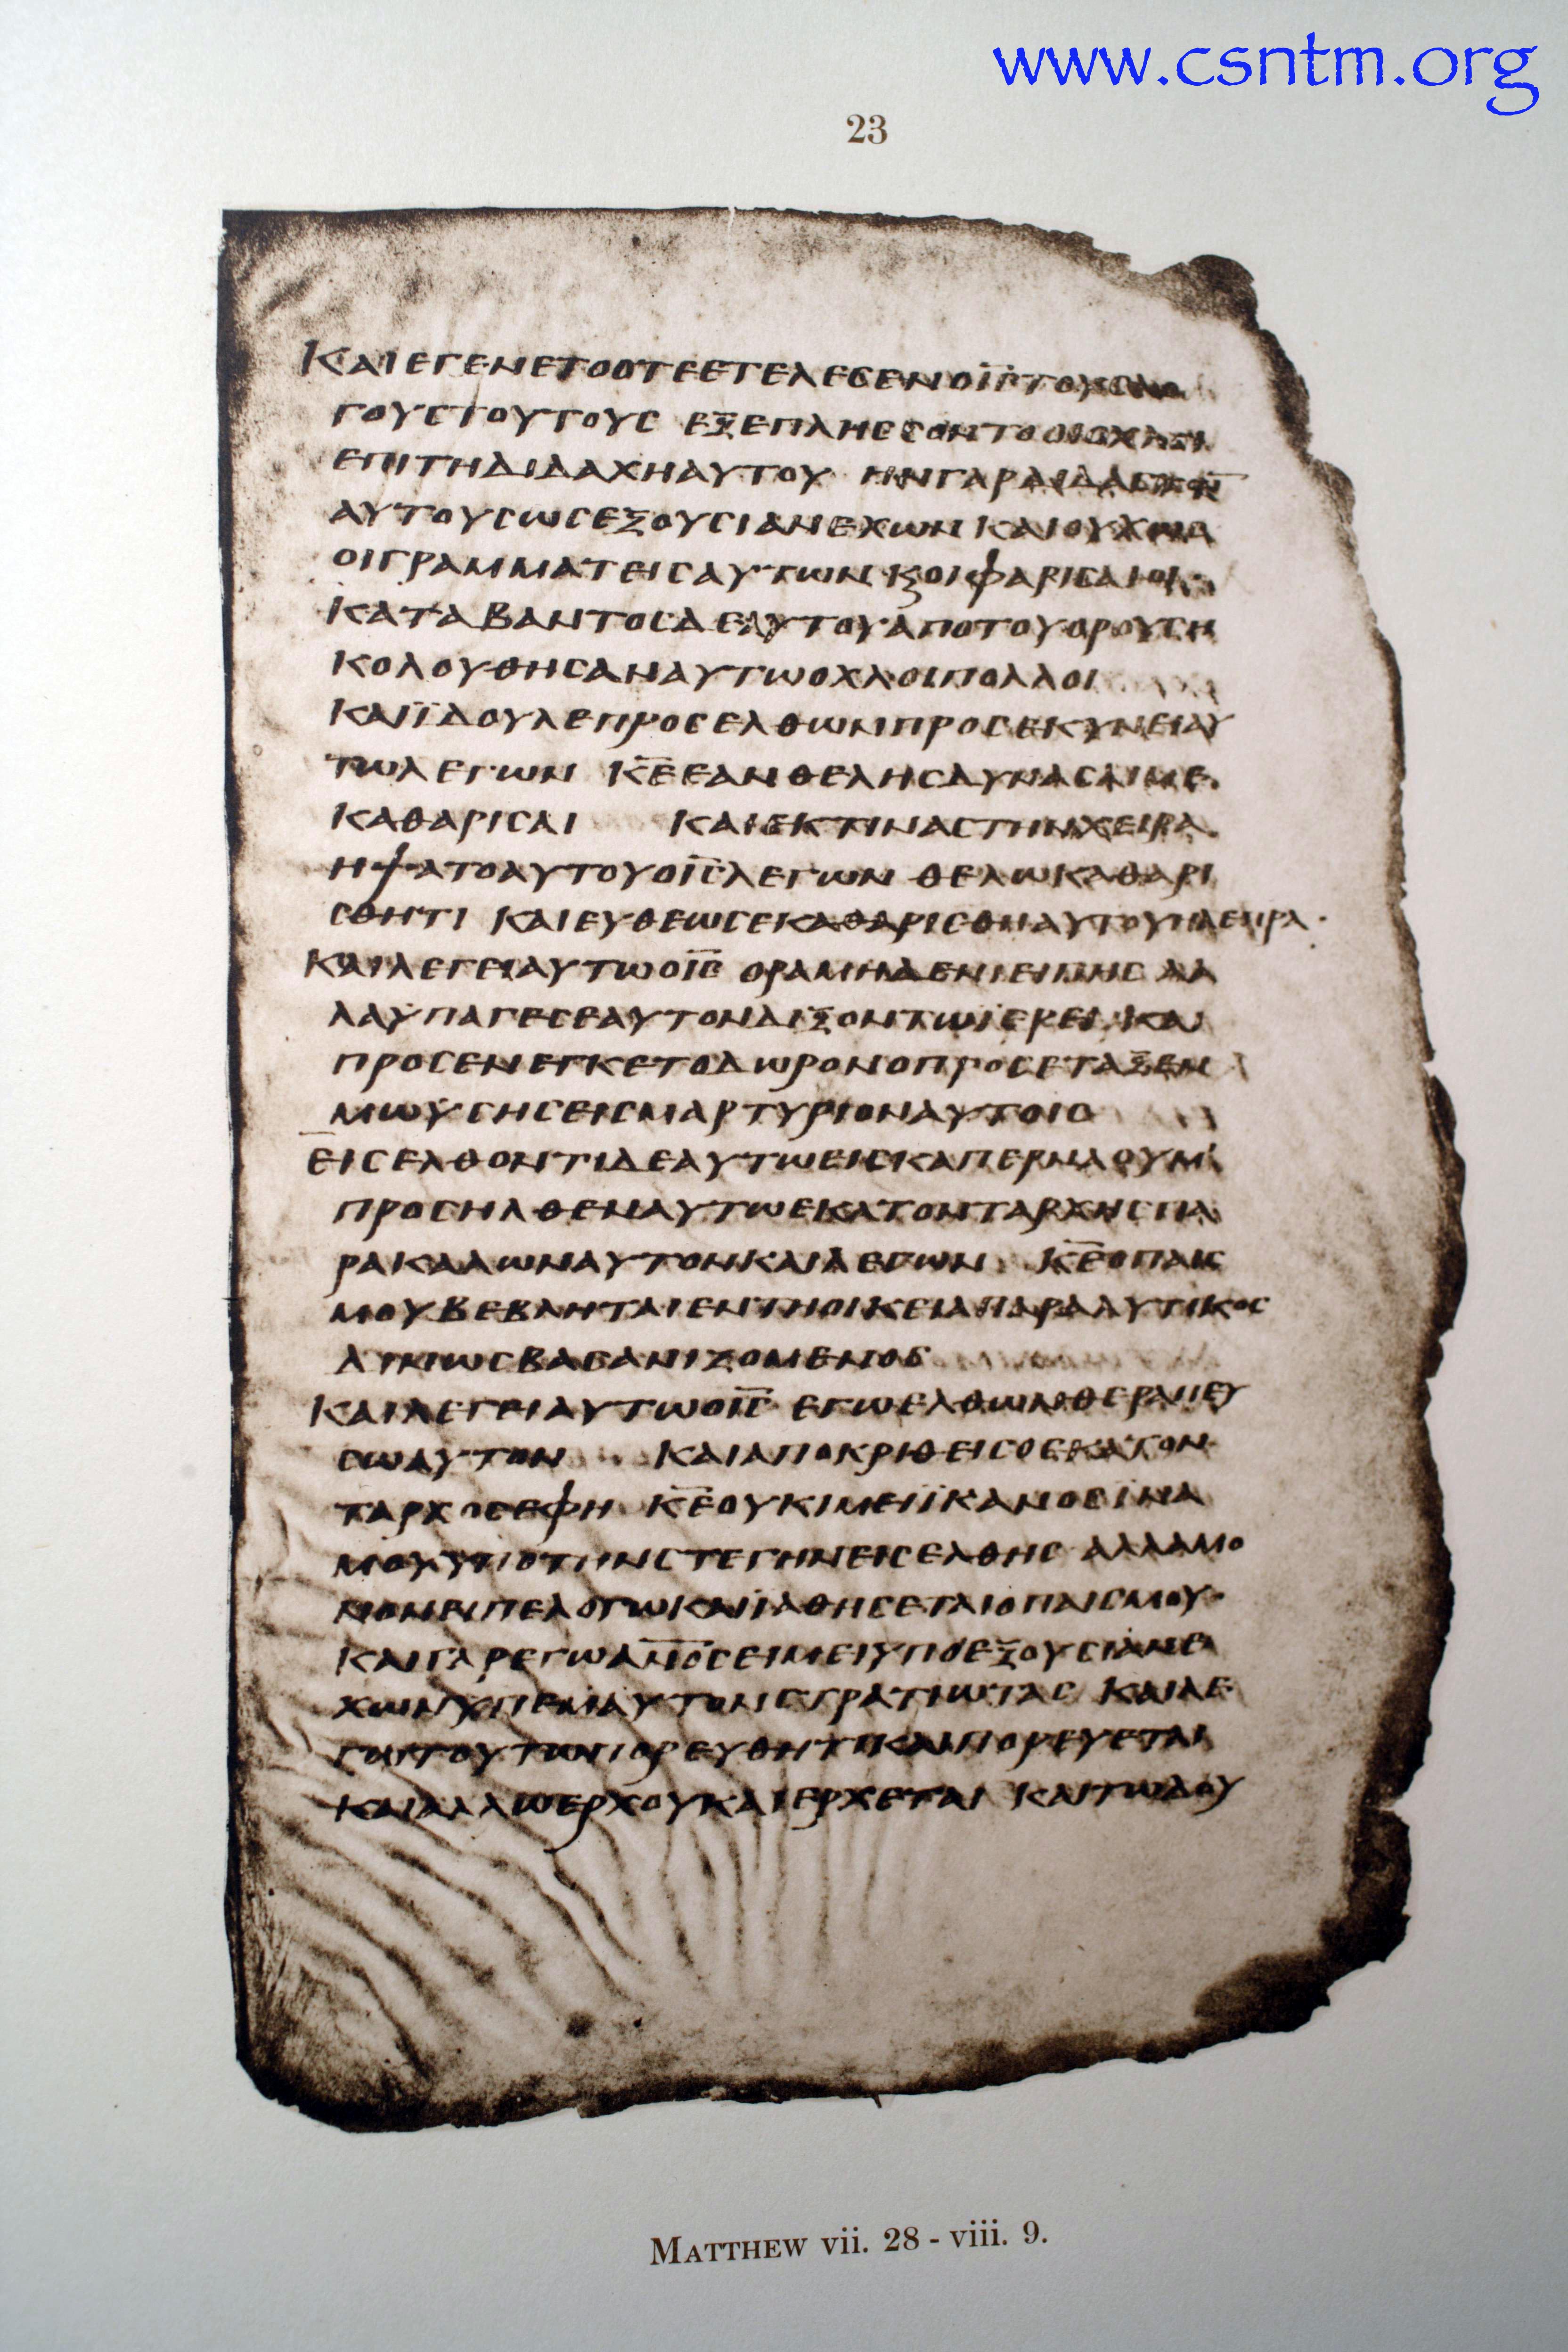 www.csntm.org
23
ΚΑΙ ΕΓΕΝΕΤΟ ΟΤΕ ΕΤΕΛΕСΕΝ Ο ΙС̅ ΤΟΥС ΛΟ
ΓΟΥС ΤΟΥΤΟΥС ΕΞΕΠΛΗССΟΝΤΟ ΟΙ ΟΧΛΟΙ
ΕΠΙ ΤΗ ΔΙΔΑΧΗ ΑΥΤΟΥ ΗΝ ΓΑΡ ΔΙΔΑСΚΩΝ
ΑΥΤΟΥС ΩС ΕΞΟΥСΙΑΝ ΕΧΩΝ ΚΑΙ ΟΥΧ ΩС
ΟΙ ΓΡΑΜΜΑΤΕΙС ΑΥΤΩΝ ϗ ΟΙ ΦΑΡΙСΑΙΟΙ·
ΚΑΤΑΒΑΝΤΟС ΔΕ ΑΥΤΟΥ ΑΠΟ ΤΟΥ ΟΡΟΥС Η
ΚΟΛΟΥΘΗСΑΝ ΑΥΤΩ ΟΧΛΟΙ ΠΟΛΛΟΙ
ΚΑΙ ΪΔΟΥ ΛΕΠΡΟС ΕΛΘΩΝ ΠΡΟСΕΚΥΝΕΙ ΑΥ
ΤΩ ΛΕΓΩΝ Κ̅Ε̅ ΕΑΝ ΘΕΛΗС ΔΥΝΑСΑΙ ΜΕ
ΚΑΘΑΡΙСΑΙ ΚΑΙ ΕΚΤΙΝΑС ΤΗΝ ΧΕΙΡΑ
ΗΨΑΤΟ ΑΥΤΟΥ Ο Ι̅С̅ ΛΕΓΩΝ ΘΕΛΩ ΚΑΘΑΡΙ
СΘΗΤΙ ΚΑΙ ΕΥΘΕΩС ΕΚΑΘΑΡΙСΘΗ ΑΥΤΟΥ Η ΛΕΠΡΑ·
ΚΑΙ ΛΕΓΕΙ ΑΥΤΩ Ο Ι̅С̅ ΟΡΑ ΜΗΔΕΝΙ ΕΙΠΗС ΑΛ
ΛΑ ΫΠΑΓΕ СΕΑΥΤΟΝ ΔΙΞΟΝ ΤΩ ΪΕΡΕΙ ΚΑΙ
ΠΡΟСΕΝΕΓΚΕ ΤΟ ΔΩΡΟΝ Ο ΠΡΟСΕΤΑΞΕΝ
ΜΩΫСΗС ΕΙС ΜΑΡΤΥΡΙΟΝ ΑΥΤΟΙС
ΕΙСΕΛΘΟΝΤΙ ΔΕ ΑΥΤΩ ΕΙС ΚΑΠΕΡΝΑΟΥΜ
ΠΡΟСΗΛΘΕΝ ΑΥΤΩ ΕΚΑΤΟΝΤΑΡΧΗС ΠΑ
ΡΑΚΑΛΩΝ ΑΥΤΟΝ ΚΑΙ ΛΕΓΩΝ Κ̅Ε̅ Ο ΠΑΙС
ΜΟΥ ΒΕΒΛΗΤΑΙ ΕΝ ΤΗ ΟΙΚΕΙΑ ΠΑΡΑΛΥΤΙΚΟС
ΔΙΝΩС ΒΑСΑΝΙΖΟΜΕΝΟС
ΚΑΙ ΛΕΓΕΙ ΑΥΤΩ Ο Ι̅С̅ ΕΓΩ ΕΛΘΩΝ ΘΕΡΑΠΕΥ
СΩ ΑΥΤΟΝ ΚΑΙ ΑΠΟΚΡΙΘΕΙС Ο ΕΚΑΤΟΝ
ΤΑΡΧΟС ΕΦΗ Κ̅Ε̅ ΟΥΚ ΙΜΕΙ ΪΚΑΝΟС ΪΝΑ
ΜΟΥ ΥΠΟ ΤΗΝ СΤΕΓΗΝ ΕΙСΕΛΘΗС ΑΛΛΑ ΜΟ
ΝΟΝ ΕΙΠΕ ΛΟΓΩ ΚΑΙ ΪΑΘΗСΕΤΑΙ Ο ΠΑΙС ΜΟΥ·
ΚΑΙ ΓΑΡ ΕΓΩ Α̅Ν̅Ο̅С̅ ΕΙΜΕΙ ΥΠΟ ΕΞΟΥСΙΑΝ Ε
ΧΩΝ ΥΠ ΕΜΑΥΤΟΝ СΤΡΑΤΙΩΤΑС ΚΑΙ ΛΕ
ΓΩ ΤΟΥΤΩ ΠΟΡΕΥΘΗΤΙ ΚΑΙ ΠΟΡΕΥΕΤΑΙ
ΚΑΙ ΑΛΛΩ ΕΡΧΟΥ ΚΑΙ ΕΡΧΕΤΑΙ ΚΑΙ ΤΩ ΔΟΥ
MATTHEW vii. 28 - viii. 9.